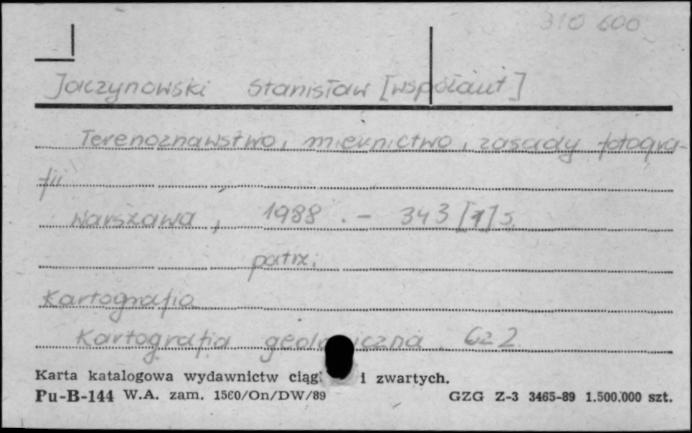 310 600
Jaczynowski Stanisław [współaut]
Terenoznawstwo, miernictwo, zasady fotogra-
fii
Warszawa, 1988. - 343 [1] s.
patrz:
Kartografia
Kartografia geologiczna. Cz 2
Karta katalogowa wydawnictw ciągł i zwartych.
Pu-B-144 W.A. zam. 1560/On/DW/89 GZG Z-3 3465-89 1.500.000 szt.